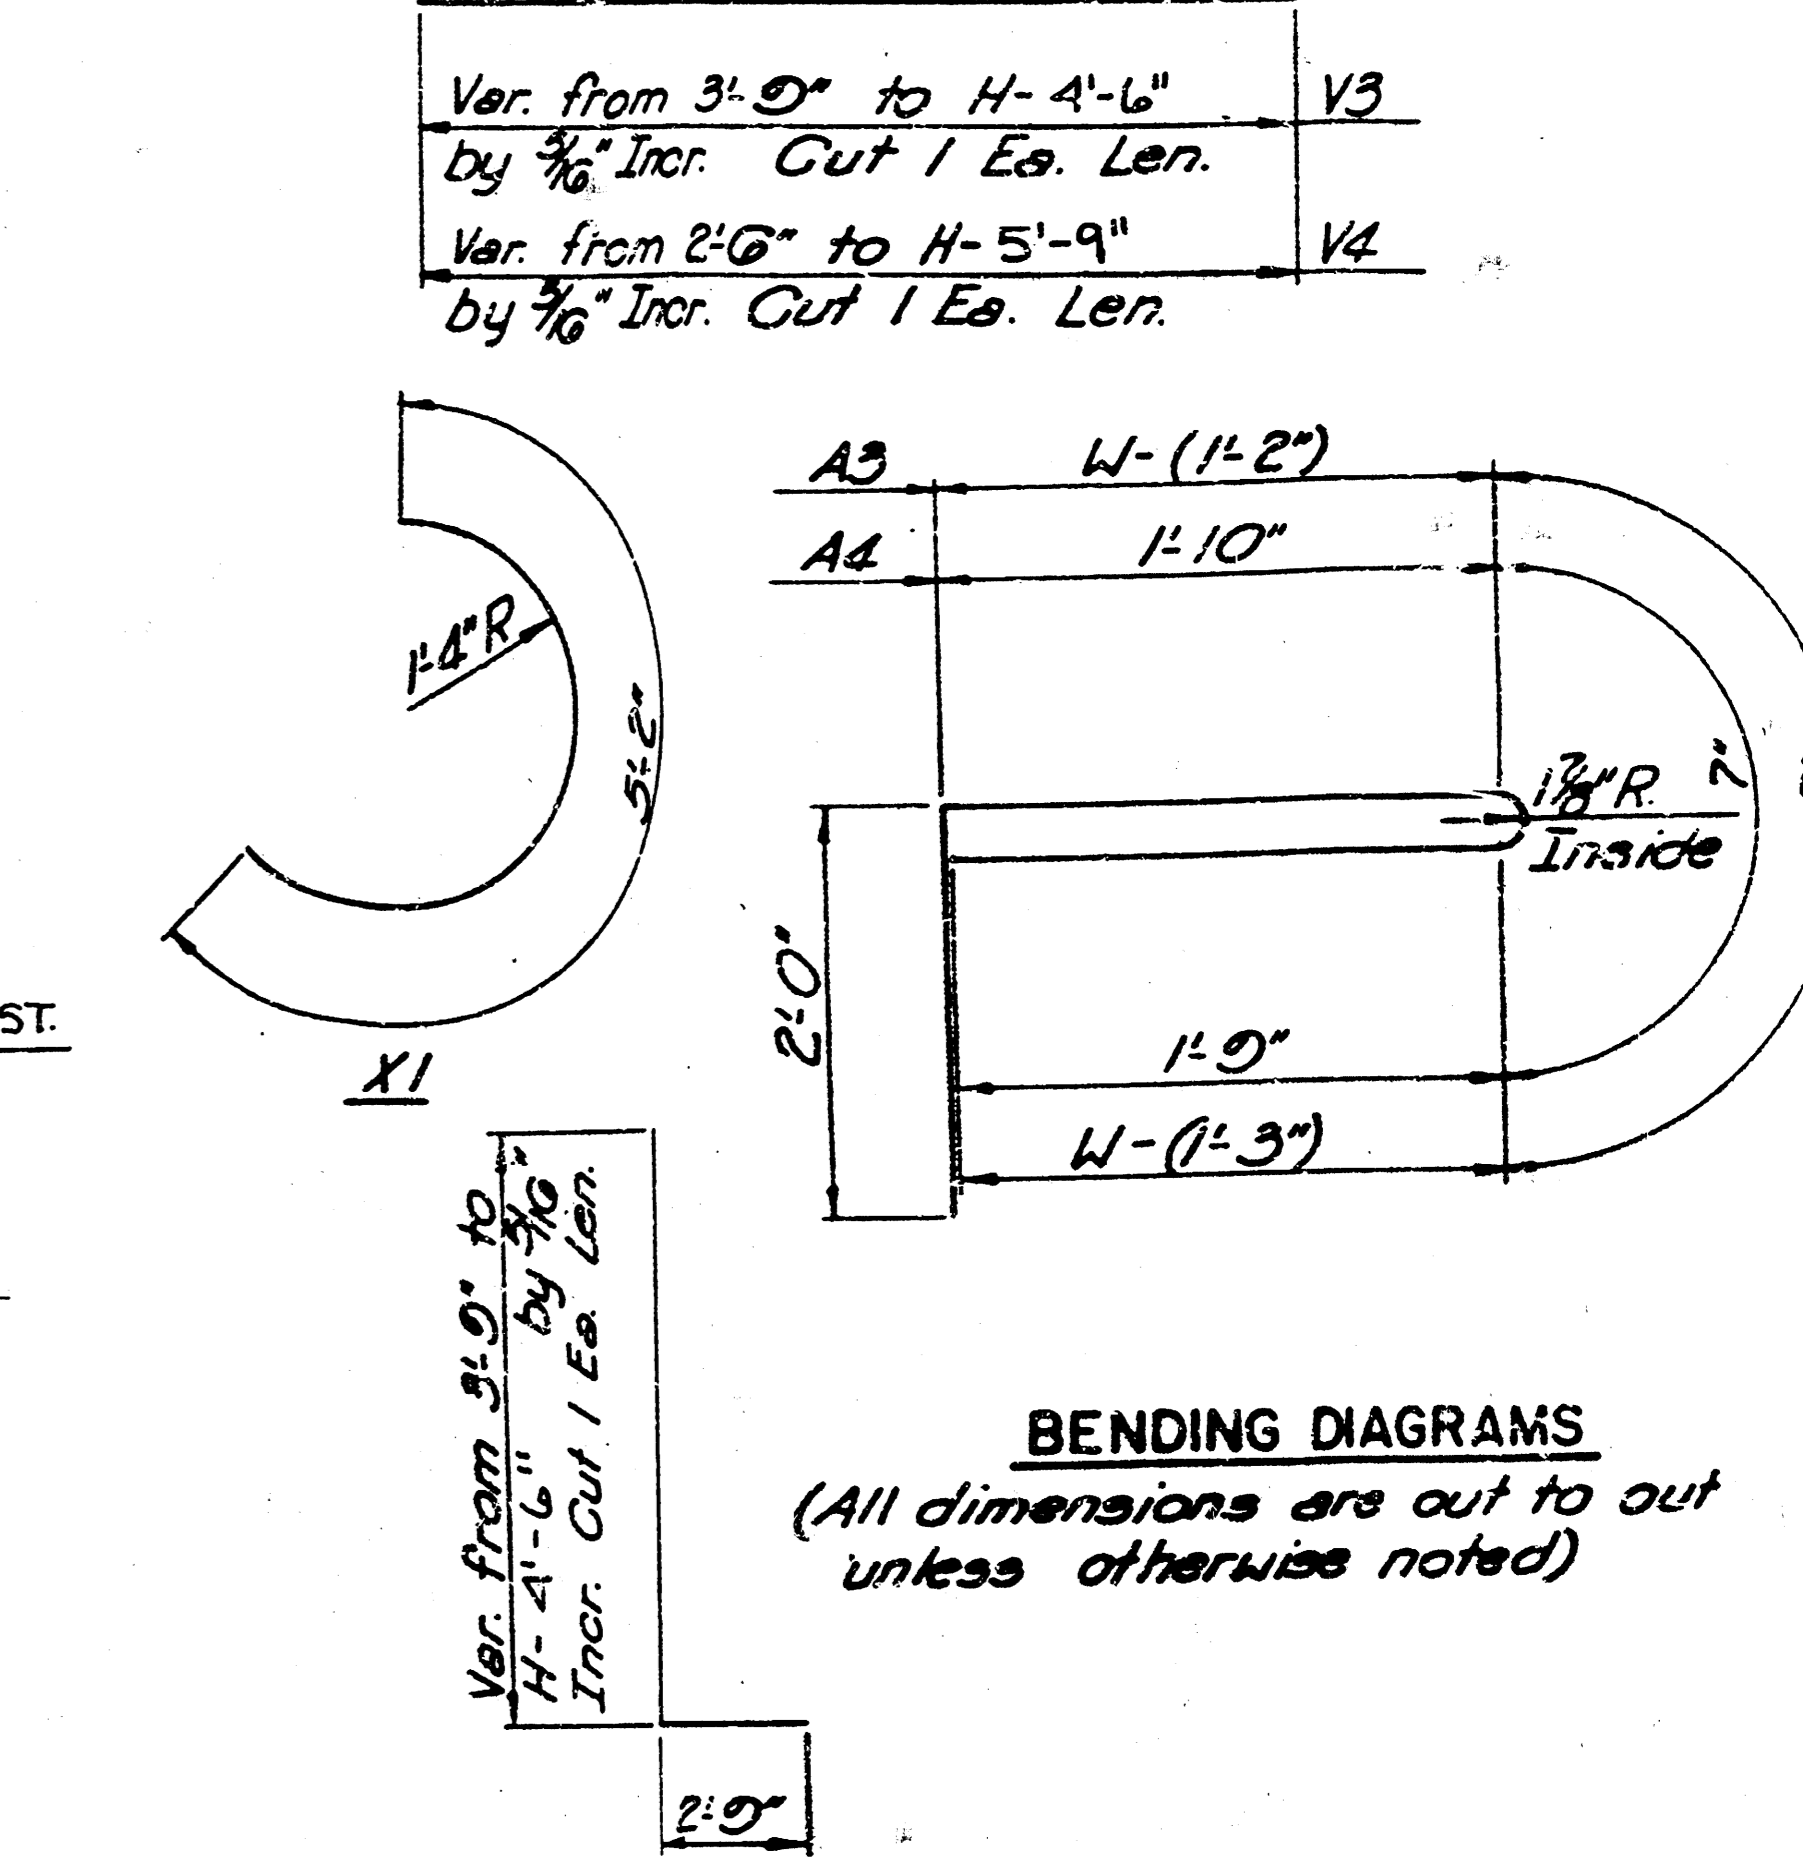 Var. from 3'-9" to H-4'-6" V3
by 5/16" Incr. Cut 1 Ea. Len.
Var. from 2'-6" to H-5'-9" V4
by 5/16" Incr. Cut 1 Ea. Len.
A3 W-(1'-2")
A4 1'-10"
1'-4" R
5'-2"
1 7/8" R.
Inside
7"
2'-0"
ST.
X1
1'-9"
W-(1'-3")
Var. from 3'-9" to
H-4'-6" by 5/16"
Incr. Cut 1 Ea. Len.
2'-9"
BENDING DIAGRAMS
(All dimensions are out to out
unless otherwise noted)